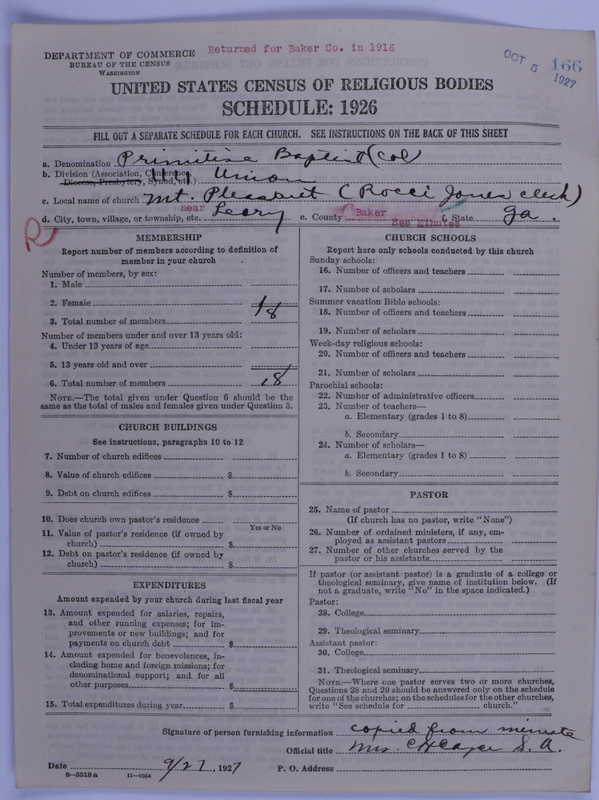 Returned for Baker Co. in 1916
DEPARTMENT OF COMMERCE
BUREAU OF THE CENSUS
WASHINGTON
OCT 5 1927
166
UNITED STATES CENSUS OF RELIGIOUS BODIES
SCHEDULE: 1926
FILL OUT A SEPARATE SCHEDULE FOR EACH CHURCH. SEE INSTRUCTIONS ON THE BACK OF THIS SHEET
a. Denomination Primitive Baptist (Col)
b. Division (Association, Conference, Diocese, Presbytery, Synod, etc.) Union
c. Local name of church Mt. Pleasant (Rocci Jones clerk)
d. City, town, village, or township, etc. near Leary e. County Baker See Minutes & State Ga.
R
MEMBERSHIP
Report number of members according to definition of
member in your church
Number of members, by sex:
1. Male
2. Female
3. Total number of members 18
Number of members under and over 13 years old:
4. Under 13 years of age
5. 13 years old and over
6. Total number of members 18
NOTE.—The total given under Question 6 should be the
same as the total of males and females given under Question 3.
CHURCH BUILDINGS
See instructions, paragraphs 10 to 12
7. Number of church edifices
8. Value of church edifices $
9. Debt on church edifices $
10. Does church own pastor's residence
Yes or No
11. Value of pastor's residence (if owned by
church) $
12. Debt on pastor's residence (if owned by
church) $
EXPENDITURES
Amount expended by your church during last fiscal year
13. Amount expended for salaries, repairs,
and other running expenses; for im-
provements or new buildings; and for
payments on church debt $
14. Amount expended for benevolences, in-
cluding home and foreign missions; for
denominational support; and for all
other purposes $
15. Total expenditures during year $
CHURCH SCHOOLS
Report here only schools conducted by this church
Sunday schools:
16. Number of officers and teachers
17. Number of scholars
Summer vacation Bible schools:
18. Number of officers and teachers
19. Number of scholars
Week-day religious schools:
20. Number of officers and teachers
21. Number of scholars
Parochial schools:
22. Number of administrative officers
23. Number of teachers—
a. Elementary (grades 1 to 8)
b. Secondary
24. Number of scholars—
a. Elementary (grades 1 to 8)
b. Secondary
PASTOR
25. Name of pastor
(If church has no pastor, write "None")
26. Number of ordained ministers, if any, em-
ployed as assistant pastors
27. Number of other churches served by the
pastor or his assistants
If pastor (or assistant pastor) is a graduate of a college or
theological seminary, give name of institution below. (If
not a graduate, write "No" in the space indicated.)
Pastor:
28. College
29. Theological seminary
Assistant pastor:
30. College
31. Theological seminary
NOTE.—Where one pastor serves two or more churches,
Questions 28 and 29 should be answered only on the schedule
for one of the churches; on the schedules for the other churches,
write "See schedule for church."
Signature of person furnishing information copied from minute
Official title Mrs. S. A.
Date 9/27, 1927 P. O. Address
8—5518a 11—9054